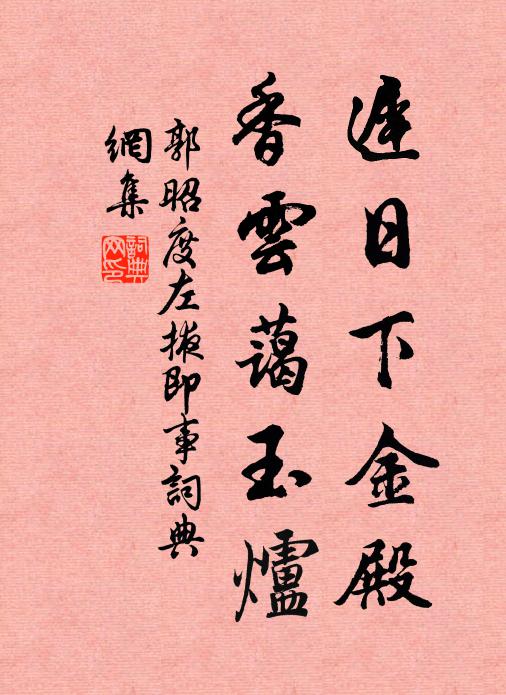 遲日下金殿
香雲藹玉爐
郭昭度左掖即事詞典
網集
詞典網印